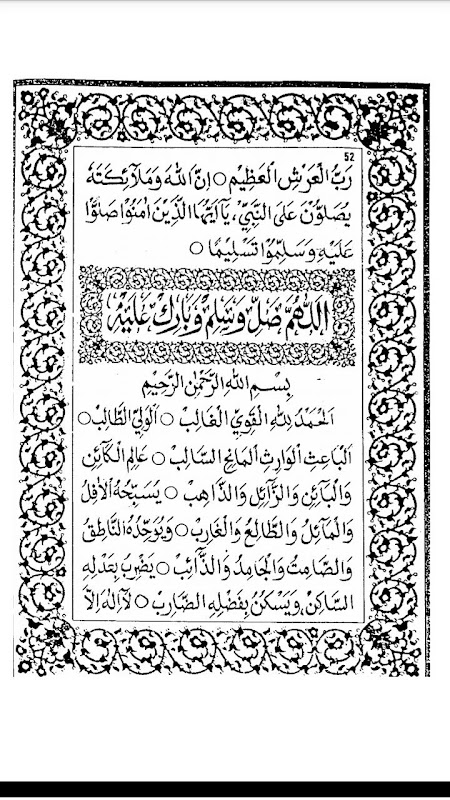 52
رَبُّ الْعَرْشِ الْعَظِيْمِ ○ اِنَّ اللهَ وَمَلَآئِكَتَهُ
يُصَلُّوْنَ عَلَى النَّبِيِّ، يَآاَيُّهَا الَّذِيْنَ اٰمَنُوْا صَلُّوْا
عَلَيْهِ وَسَلِّمُوْا تَسْلِيْمًا ○
اَللّٰهُمَّ صَلِّ وَسَلِّمْ وَبَارِكْ عَلَيْهِ
بِسْمِ اللهِ الرَّحْمٰنِ الرَّحِيْمِ
اَلْحَمْدُ لِلّٰهِ الْقَوِيِّ الْغَالِبْ ○ اَلْوَلِيِّ الطَّالِبْ ○
اَلْبَاعِثِ الْوَارِثِ الْمَانِحِ السَّالِبْ ○ عَالِمِ الْكَآئِنِ
وَالْبَآئِنِ وَالزَّآئِلِ وَالذَّاهِبْ ○ يُسَبِّحُهُ الْاٰفِلُ
وَالْمَآئِلُ وَالطَّالِعُ وَالْغَارِبْ ○ وَيُوَحِّدُهُ النَّاطِقُ
وَالصَّامِتُ وَالْجَامِدُ وَالذَّآئِبْ ○ يَضْرِبُ بِعَدْلِهِ
السَّاكِنُ، وَيَسْكُنُ بِفَضْلِهِ الضَّارِبْ ○ لَآاِلٰهَ اِلَّا